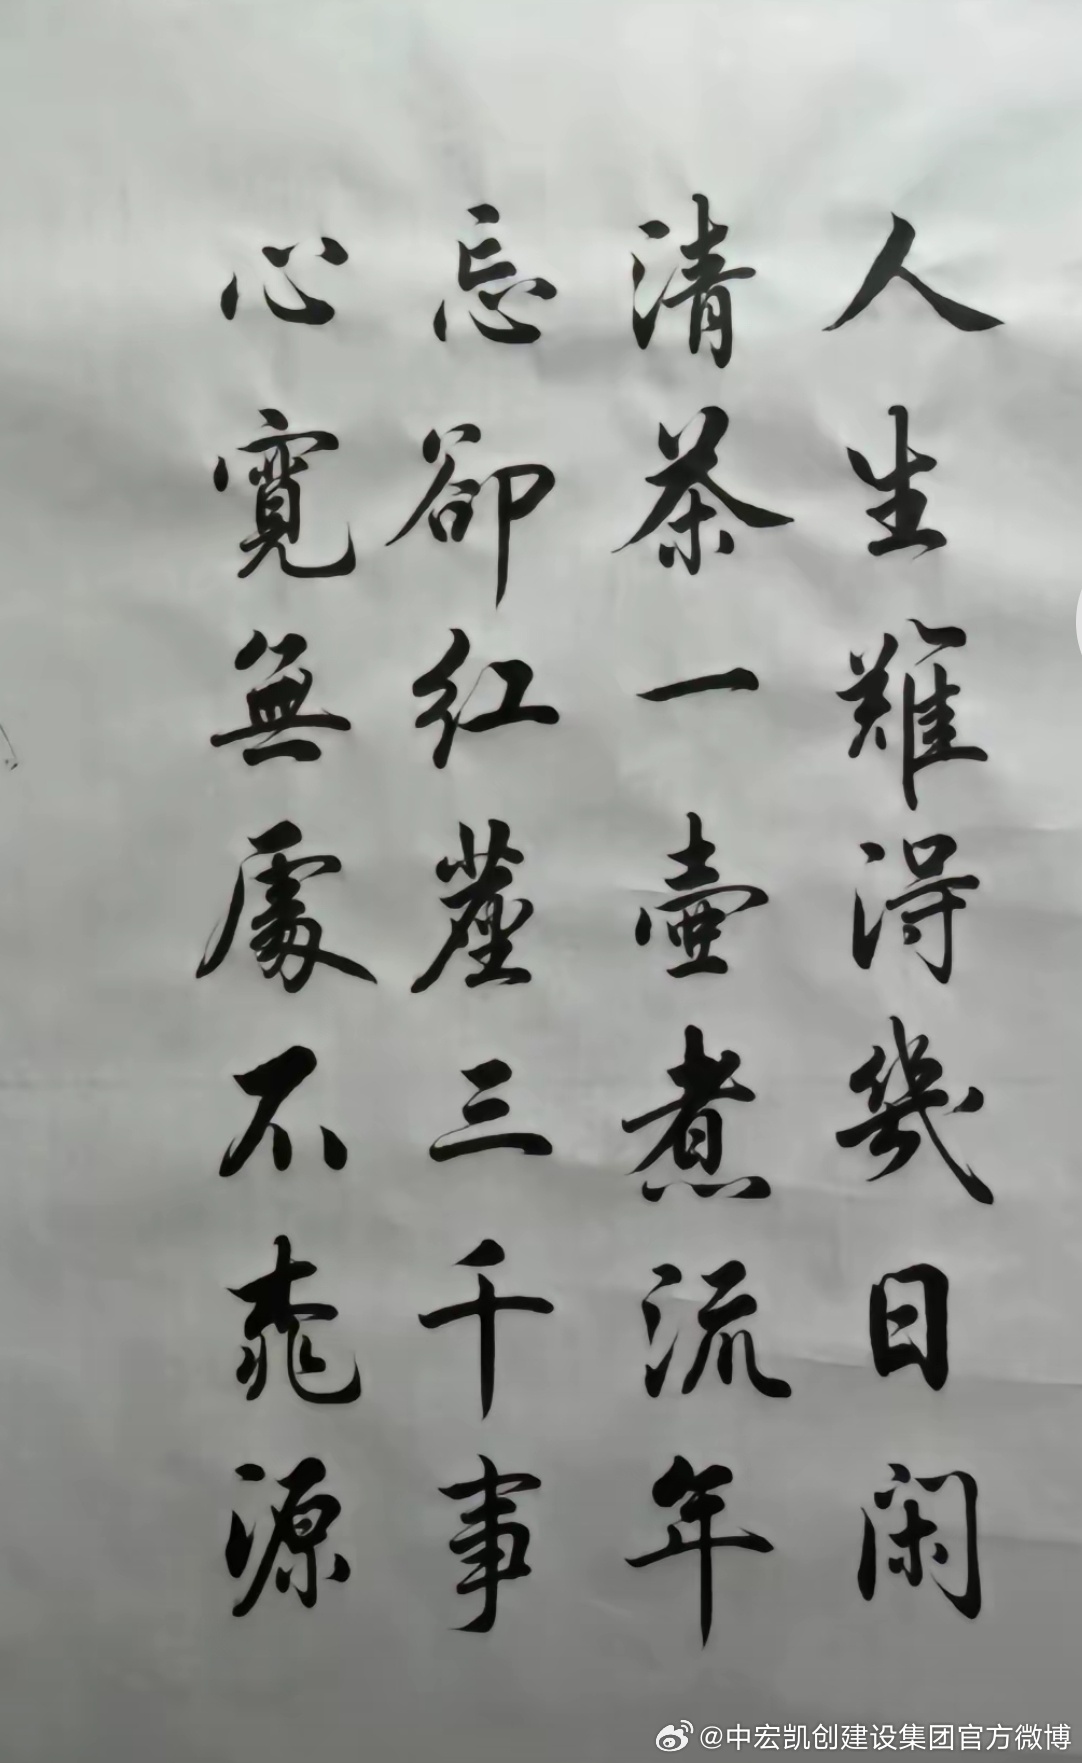 人生難得幾日闲
清茶一壺煮流年
忘卻紅塵三千事
心寬無處不桃源
@中宏凯创建设集团官方微博